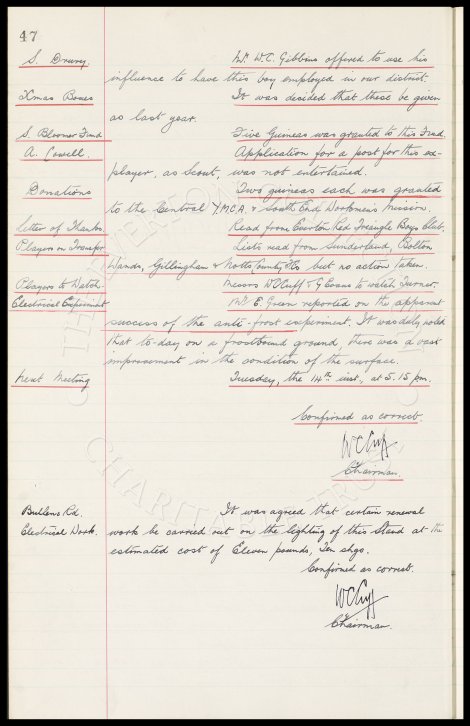 47
S. Drury. Mr. W.C. Gibbins offered to use his
influence to have this boy employed in our district.
Xmas Boxes It was decided that these be given
as last year.
S. Bloomer Fund Five Guineas was granted to this Fund.
A. Lowell. Application for a post for this ex-
player, as Scout, was not entertained.
Donations Two guineas each was granted
to the Central YMCA & South End Workmen's Mission.
Letter of Thanks Read from Everton Red Triangle Boys Club.
Players on Transfer Lists read from Sunderland, Bolton
Wands, Gillingham & Notts County FCs but no action taken.
Players to Watch Messrs WCCuff & G Evans to watch Turner.
Electrical Experiment Mr. E. Green reported on the apparent
success of the anti-frost experiment. It was duly noted
that to-day on a frostbound ground, there was a vast
improvement in the condition of the surface.
Next Meeting Tuesday, the 14th inst, at 5.15 pm.
Confirmed as correct.
WCCuff
Chairman.
Bullens Rd. It was agreed that certain renewal
Electrical Work. work be carried out on the lighting of this Stand at the
estimated cost of Eleven pounds, Ten shgs.
Confirmed as correct.
WCCuff
Chairman.